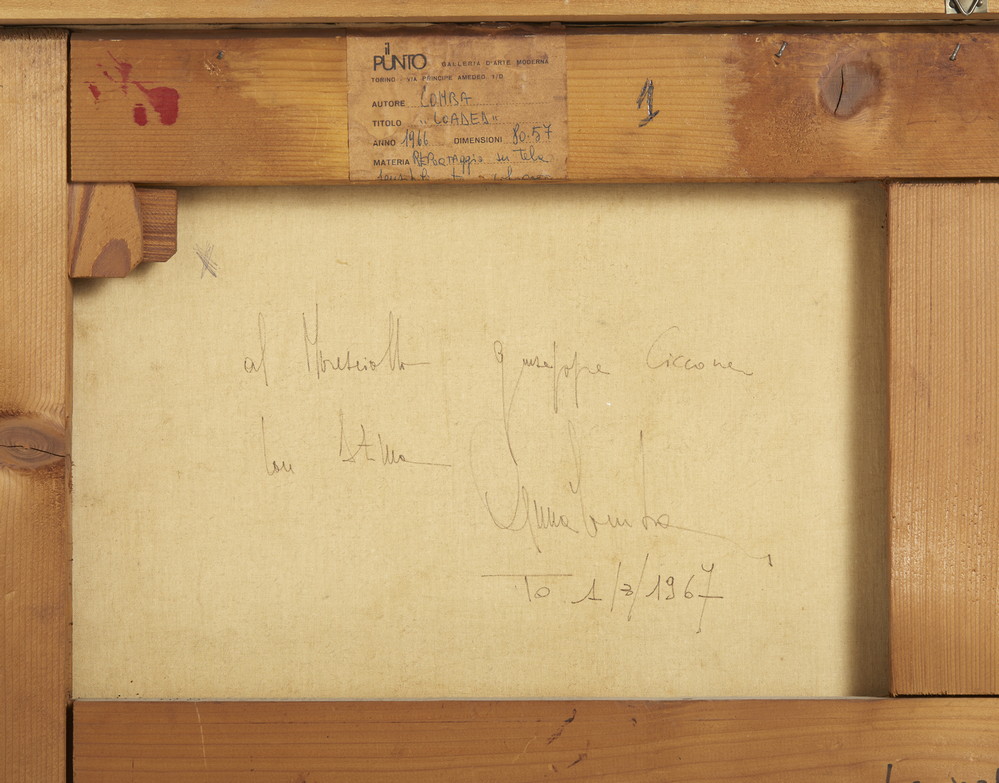 il
PUNTO GALLERIA D'ARTE MODERNA
TORINO - VIA PRINCIPE AMEDEO 1/D
AUTORE COMBA
TITOLO "LOADED"
ANNO 1966 DIMENSIONI 80.57
MATERIA su tela
1
al Maresciallo Giuseppe Ciccone
Con Stima
Anna Comba
To 1/3/1967